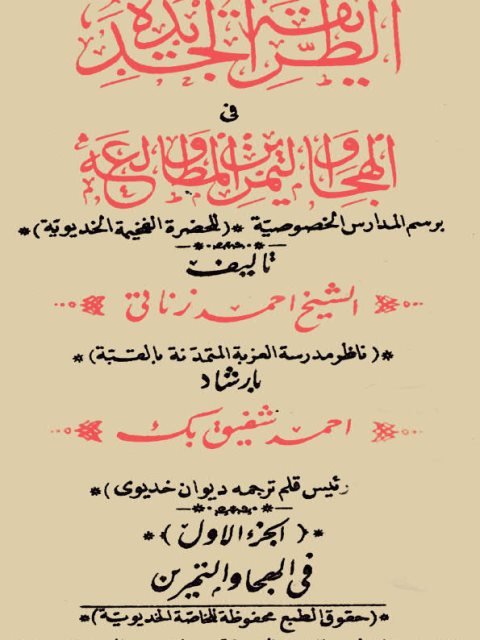 الطريقة الجديدة
فى
الهجاء والتمرين والمطالعة
برسم المدارس الخصوصية *(للحضرة الفخيمة الخديوية)*
تأليف
الشيخ احمد زناتى
*(ناظر مدرسة العزبة المتمدنة بالقبة)*
بارشاد
احمد شفيق بك
رئيس قلم ترجمه ديوان خديوى)*
*(الجزء الاول)*
فى الهجا والتمرين
*(حقوق الطبع محفوظة للخاصة الخديوية)*